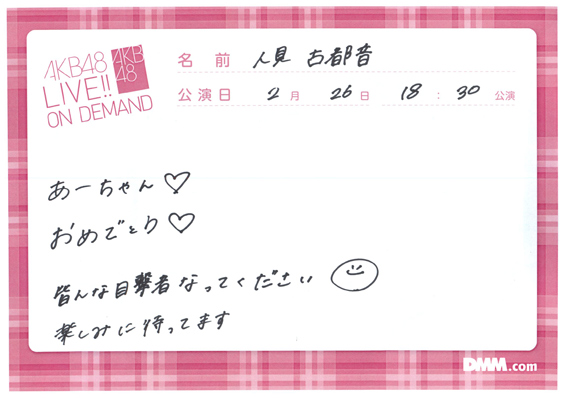 AKB48
LIVE!!
ON DEMAND
AKB
48
名前 人見 古都音
公演日 2月 26日 18:30 公演
あーちゃん♡
おめでとう♡
皆んな目撃者なってください
楽しみに待ってます
DMM.com